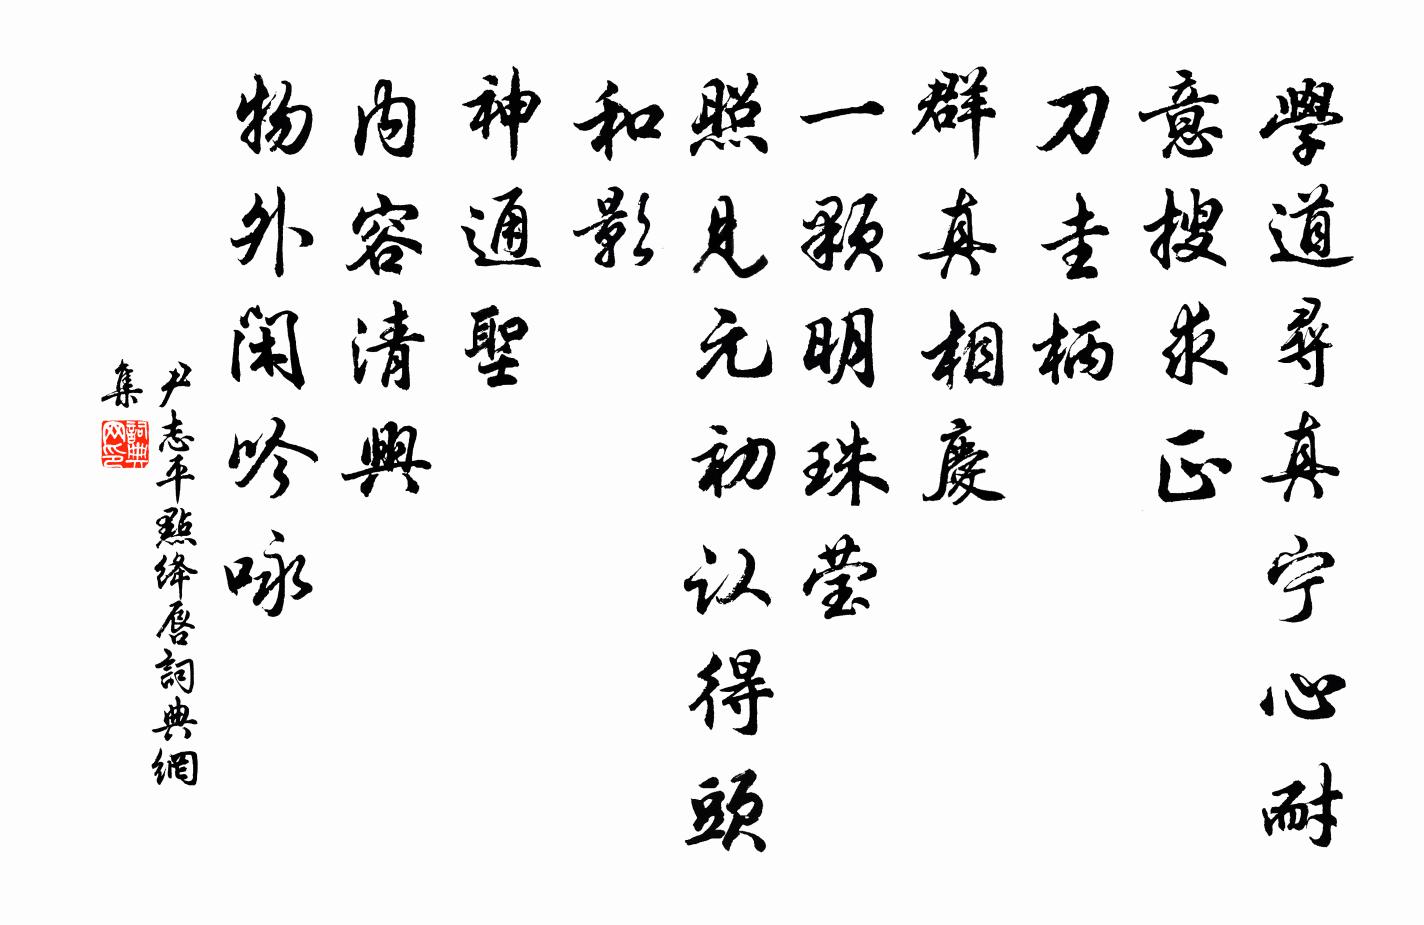 學道尋真宁心耐
意搜求正
刀圭柄
群真相慶
一顆明珠莹
照見元初认得頭
和影
神通聖
内容清興
物外闲吟咏
尹志平點绛唇詞典網
集
詞典网印